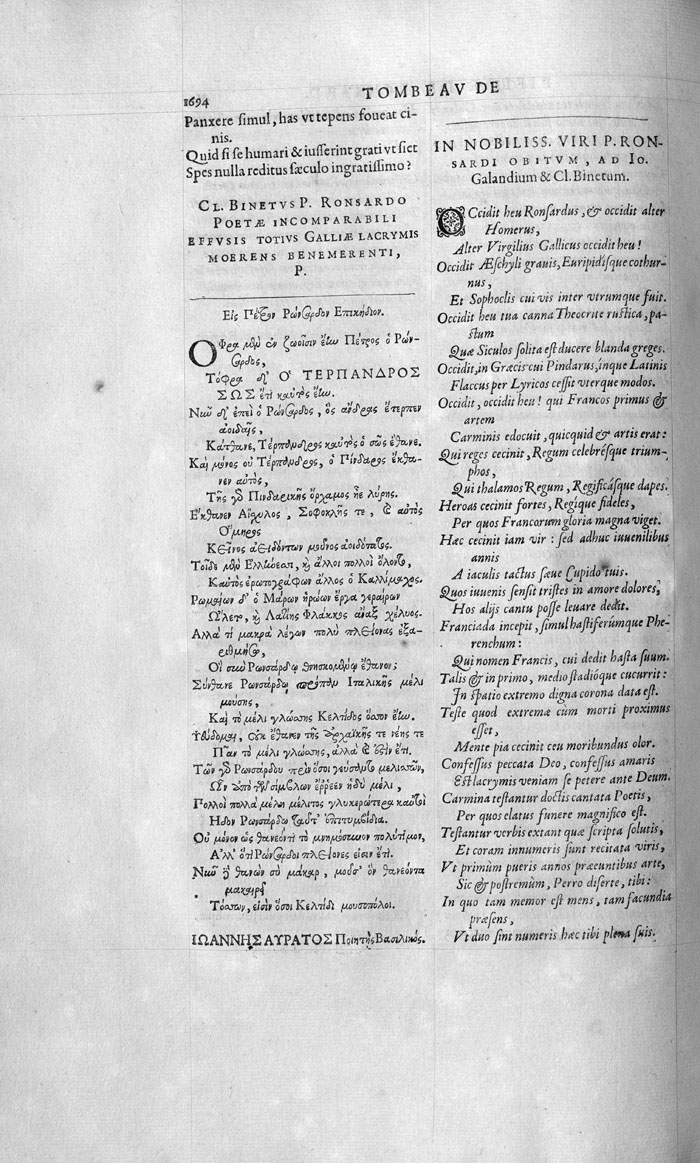 1694
TOMBEAV DE
Panxere simul, has vt tepens foueat ci-
nis.
Quid si se humari & iusserint grati vt siet
Spes nulla reditus sæculo ingratissimo?
CL. BINETVS P. RONSARDO
POETÆ INCOMPARABILI
EFFVSIS TOTIVS GALLIÆ LACRYMIS
MOERENS BENEMERENTI,
P.
Εἰς Πέτρον Ρώνσαρδον Επικήδιον.
Οφρα μὲν ἐν ζωοῖσιν ἔἰω Πέτρος ὁ Ρών-
σαρδος,
Τόφρα δ' Ο ΤΕΡΠΑΝΔΡΟΣ
ΣΩΣ ἔτι καὐτὸς ἔἰω.
Νιῶ δ' ἐπεὶ ὁ Ρώνσαρδος, ὃς ἄνδρας ἔτερπεν
ἀοιδαῖς,
Κάτθανε, Τέρπανδρος καὐτὸς ὁ σῶς ἔθανε.
Καὶ μόνος οὐ Τέρπανδρος, ὁ Πίνδαρος ἔκθα-
νεν αὐτὸς,
Τῆς γὸ Πινδαρικῆς ὄρχαμος ἦε λύρης.
Εκθανεν Αἰχυλος, Σοφοκλῆς τε, & αὐτὸς
Ομηρος
Κεῖνος ἀειδόντων μοῦνος ἀοιδότατος.
Τοῖδε μὲν Ελλώεσπ, κ ἄλλοι πολλοὶ ὄλοντο,
Καὐτὸς ἐρωτογράφων ἄλλος ὁ Καλλίμαχος.
Ρωμαίων δ' ὁ Μάρων ἡρώων ἔργα γεραίρων
Ωλετο, κ Λατίης Φλάκκος ἄναξ χέλυος.
Αλλὰ τί μακρὰ λέγων πολὺ πλείονας ἐξα-
ριθμήσω,
Οἱ σιω Ρωνσάρδῳ θνησκομένῳ ἔθανον;
Σύνθανε Ρωνσάρδῳ Ιταλικῆς μέλι
μούσης,
Καὶ τὸ μέλι γλώσσης Κελτίδος ὅσσον ἔἰω.
Ψεύδομαι, οὐκ ἔθανεν τῆς ἀρχαϊκῆς τε νέης τε
Πᾶν τὸ μέλι γλώσσης, ἀλλὰ & ὅξιν ἔτι.
Τῶν γὸ Ρωνσάρδου πρὶν ὅσοι γεύσαντο μελισσῶν,
Ων ἀπὸ σίμβλων ἔῤῥεεν ἡδὺ μέλι,
Πολλοὶ πολλὰ μέλη μέλιτος γλυκερώτερα καὐτοὶ
Ηδον Ρωνσάρδῳ ταῦτ' ἐπιτυμβίδια.
Οὐ μόνον ὡς θανεόντι τὸ μνημόσιωον πολύτιμον,
Αλλ' ὅτι Ρώνσαρδοι πλείονες εἰσιν ἔτι.
Νιῶ ἢ θανὼν σὺ μάκαρ, μοῦσ' ὃν θανεόντα
μακαρὶ
Τόσσων, εἰσὶν ὅσοι Κελτίδι μουσοπόλοι.
ΙΩΑΝΝΗΣ ΑΥΡΑΤΟΣ Ποιητὴς Βασιλικός.
IN NOBILISS. VIRI P. RON-
SARDI OBITVM, AD IO.
Galandium & Cl. Binetum.
OCcidit heu Ronsardus, & occidit alter
Homerus,
Alter Virgilius Gallicus occidit heu!
Occidit Æschyli grauis, Euripidísque cothur-
nus,
Et Sophoclis cui vis inter vtrumque fuit.
Occidit heu tua canna Theocrite rustica, pa-
stum
Quæ Siculos solita est ducere blanda greges.
Occidit, in Græcis cui Pindarus, inque Latinis
Flaccus per Lyricos cessit vterque modos.
Occidit, occidit heu! qui Francos primus &
artem
Carminis edocuit, quicquid & artis erat:
Qui reges cecinit, Regum celebrésque trium-
phos,
Qui thalamos Regum, Regificásque dapes.
Heroas cecinit fortes, Regique fideles,
Per quos Francorum gloria magna viget.
Hæc cecinit iam vir: sed adhuc iuuenilibus
annis
A iaculis tactus sæue Cupido tuis.
Quos iuuenis sensit tristes in amore dolores,
Hos alijs cantu posse leuare dedit.
Franciada incepit, simul hastiferúmque Phe-
renchum:
Qui nomen Francis, cui dedit hasta suum.
Talis & in primo, medio stadióque cucurrit:
In spatio extremo digna corona data est.
Teste quod extrema cum morti proximus
esset,
Mente pia cecinit ceu moribundus olor.
Confessus peccata Deo, confessus amaris
Est lacrymis veniam se petere ante Deum.
Carmina testantur doctis cantata Poetis,
Per quos elatus funere magnifico est.
Testantur verbis extant quæ scripta solutis,
Et coram innumeris sunt recitata viris,
Vt primùm pueris annos præeuntibus arte,
Sic & postremùm, Perro diserte, tibi:
In quo tam memor est mens, tam facundia
præsens,
Vt duo sint numeris hæc tibi plena suis.